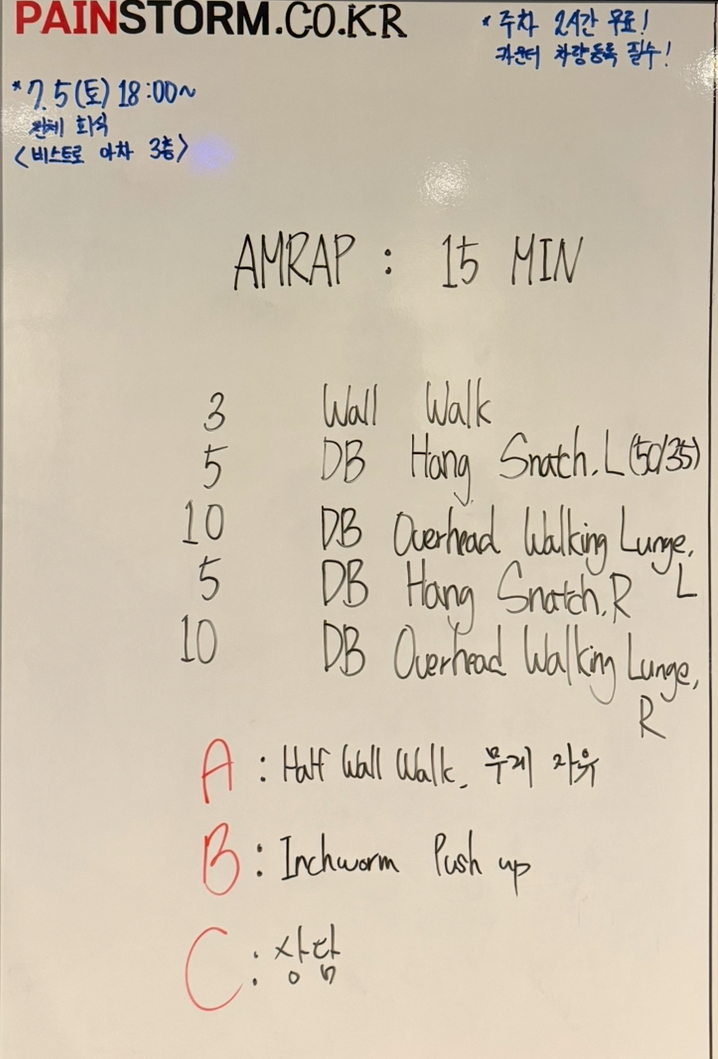 PAINSTORM.CO.KR
* 주차 2시간 무료!
카운터 차량등록 필수!
* 7.5(토) 18:00~
전체 회식
<비스트로 아차 3층>
AMRAP : 15 MIN
3 Wall Walk
5 DB Hang Snatch, L (50/35)
10 DB Overhead Walking Lunge,
L
5 DB Hang Snatch, R
10 DB Overhead Walking Lunge,
R
A : Half Wall Walk, 무게 자유
B : Inchworm Push up
C : 상담